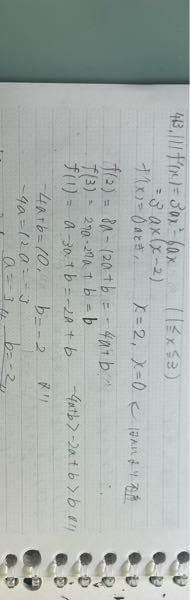 413. (1) f'(x) = 3ax² - 6ax (1≦x≦3)
= 3ax(x-2)
f'(x)=0のとき, x=2, x=0 <
f(2) = 8a - 12a + b = -4a+b
f(3) = 27a - 27a + b = b
f(1) = a - 3a + b = -2a + b -4a+b > -2a+b > b より
-4a+b=10, b=-2 より
-4a=12 a=-3
a=-3, b=-2